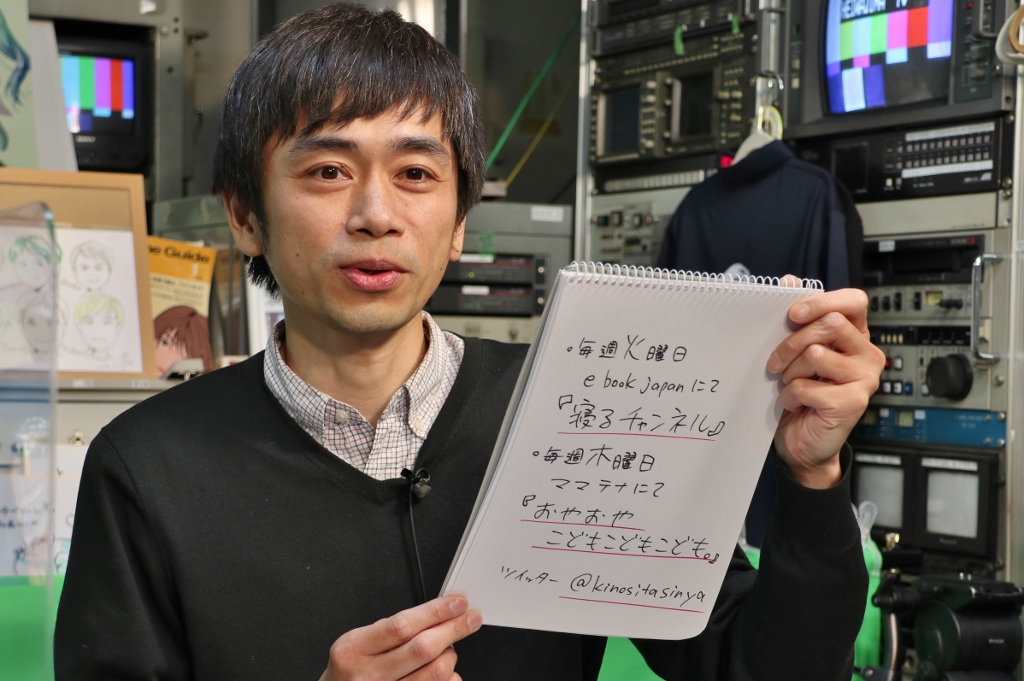 HEIWAJIMA TV
ne Guide
・毎週火曜日
ebookjapanにて
『寝るチャンネル』
・毎週木曜日
ママテナにて
『おやおや
こどもこどもこども。』
ツイッター @kinositasinya